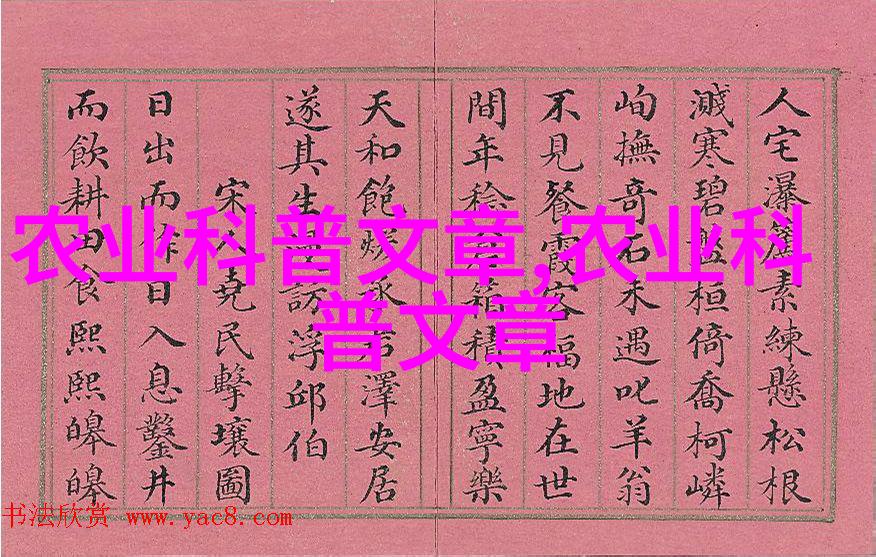 人宅瀑簾素練懸松根
濺寒碧盤桓倚喬柯嶙
峋撫奇石禾遇叱羊翁
不見餐霞客福地在世
間年稔箱積盈寧樂
天和飽澤安居
遂其生訪浮邱伯
宋人堯民擊壤圖
日出而作日入息鑿井
而飲耕田食熙熙皞皞
农业科普文章,农业科
普文章
书法欣赏 www.yac8.com